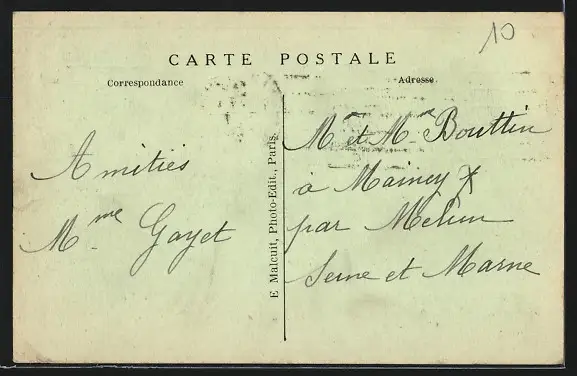 10
CARTE POSTALE
Correspondance
Adresse
Amitiés
Mme Gayet
E Malcuit, Photo-Edit., Paris.
M et Mme Bouttin
à Maincy
par Melun
Seine et Marne